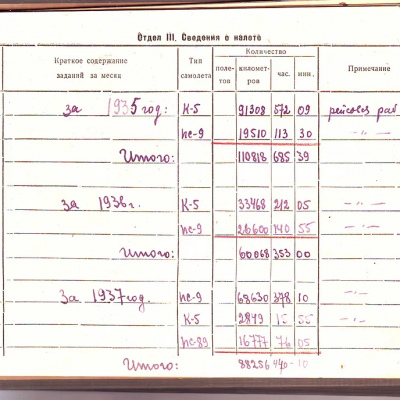 Отдел III. Сведения о налете
Краткое содержание заданий за месяц | Тип самолета | Количество | Примечание
поле-тов | километ-ров | час. | мин.
за 1935 год: К-5 91308 572 09 рейсовая раб
пс-9 19510 113 30 -"-
Итого: 110818 685 39
за 1936г. К-5 33468 212 05 -"-
пс-9 26600 140 55 -"-
Итого: 60068 353 00
За 1937 год. пс-9 68630 378 10 -"-
К-5 2849 15 55 -"-
пс-89 16777 76 05
Итого: 88256 470-10